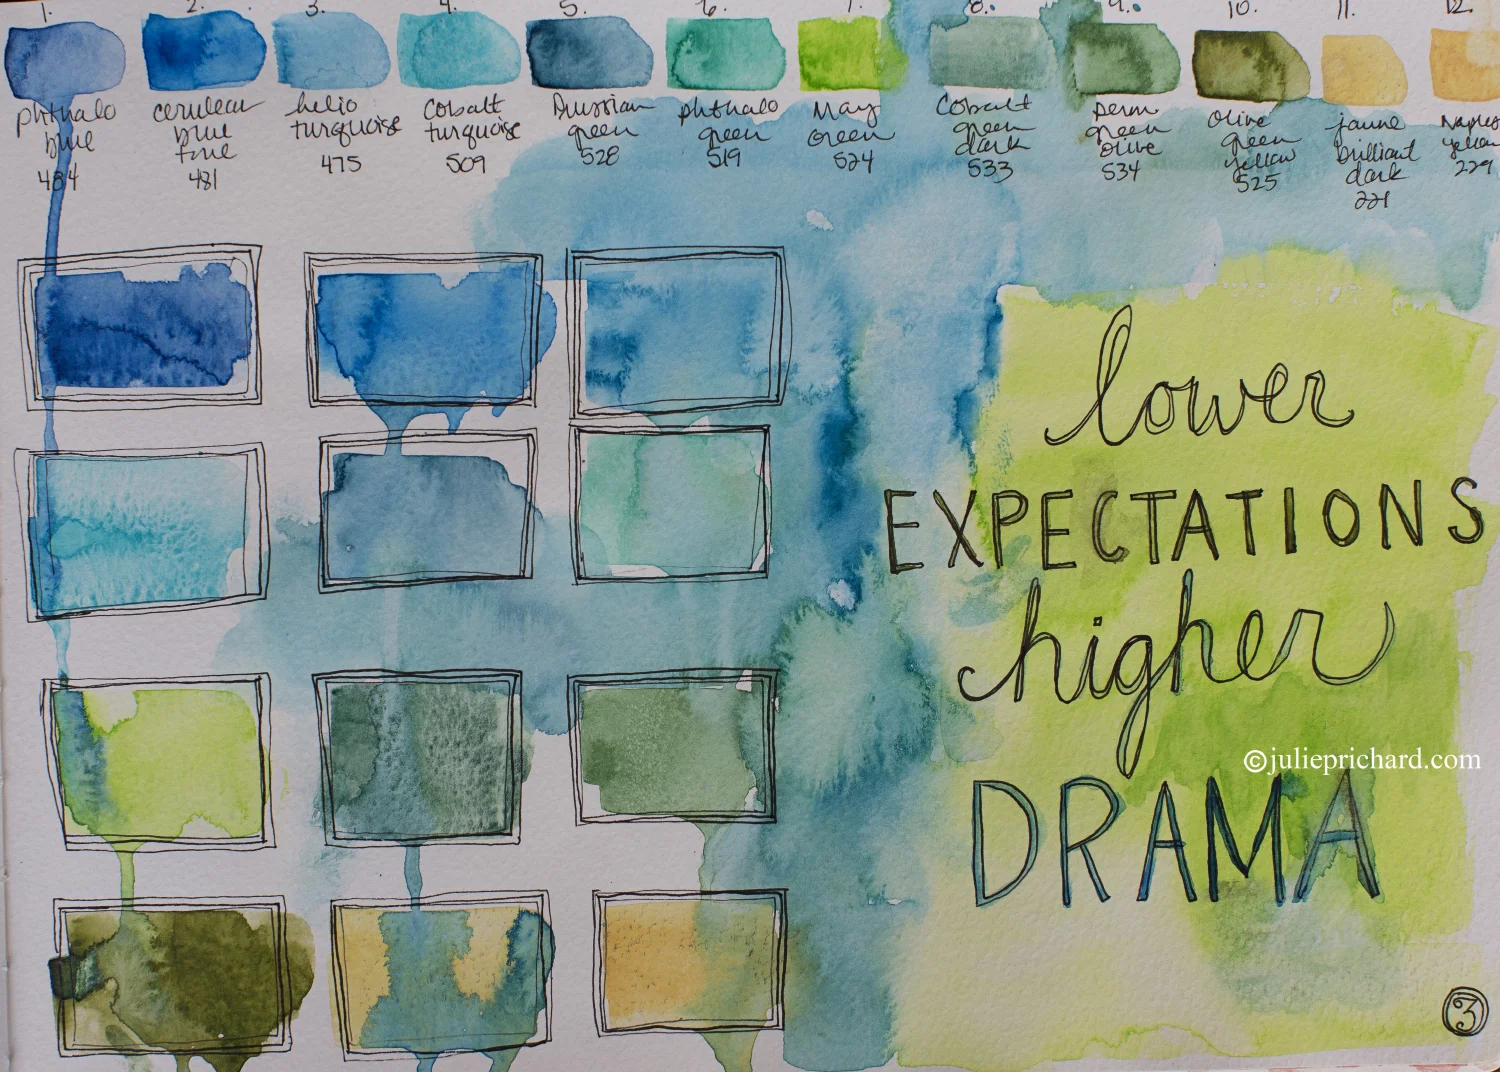 1. 2. 3. 4. 5. 6. 7. 8. 9. 10. 11. 12.
phthalo
blue
484
cerulean
blue
tone
481
helio
turquoise
475
Cobalt
turquoise
509
Prussian
green
528
phthalo
green
519
May
Green
524
Cobalt
green
dark
533
perm
green
olive
534
Olive
green
yellow
525
jaune
brilliant
dark
221
Naples
yellow
229
lower
EXPECTATIONS
higher
©julieprichard.com
DRAMA
3